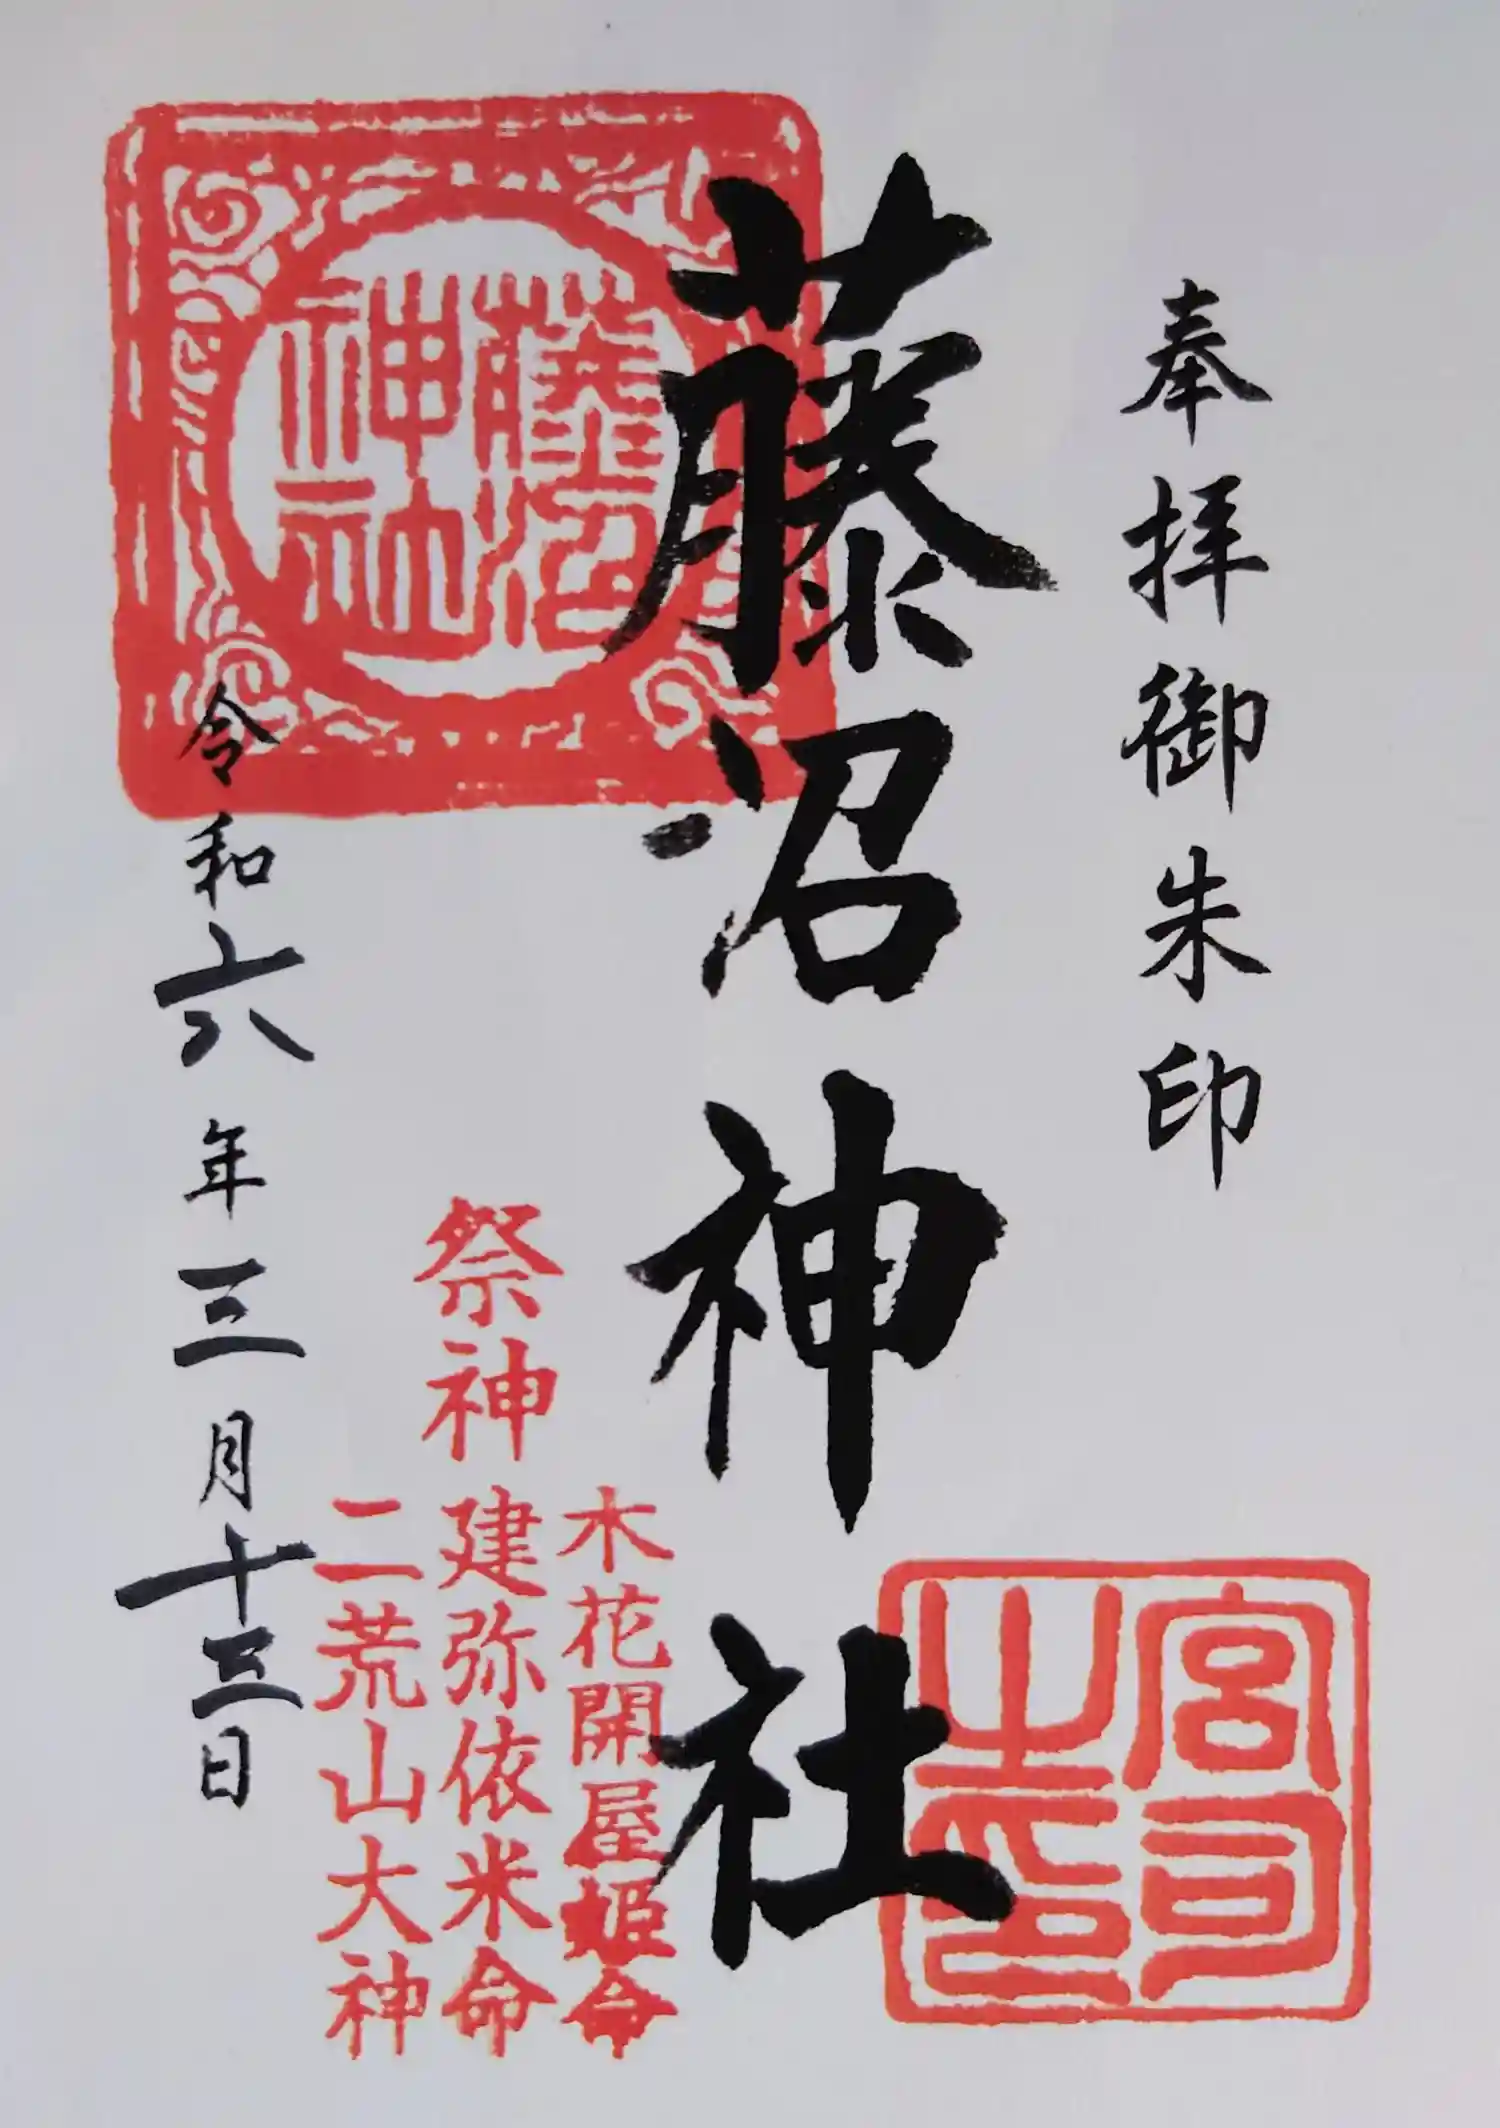 奉拝御朱印
藤沼神社
宮司之印
藤沼
神社
祭神
木花開屋姫命
建弥依米命
二荒山大神
令和六年三月十三日